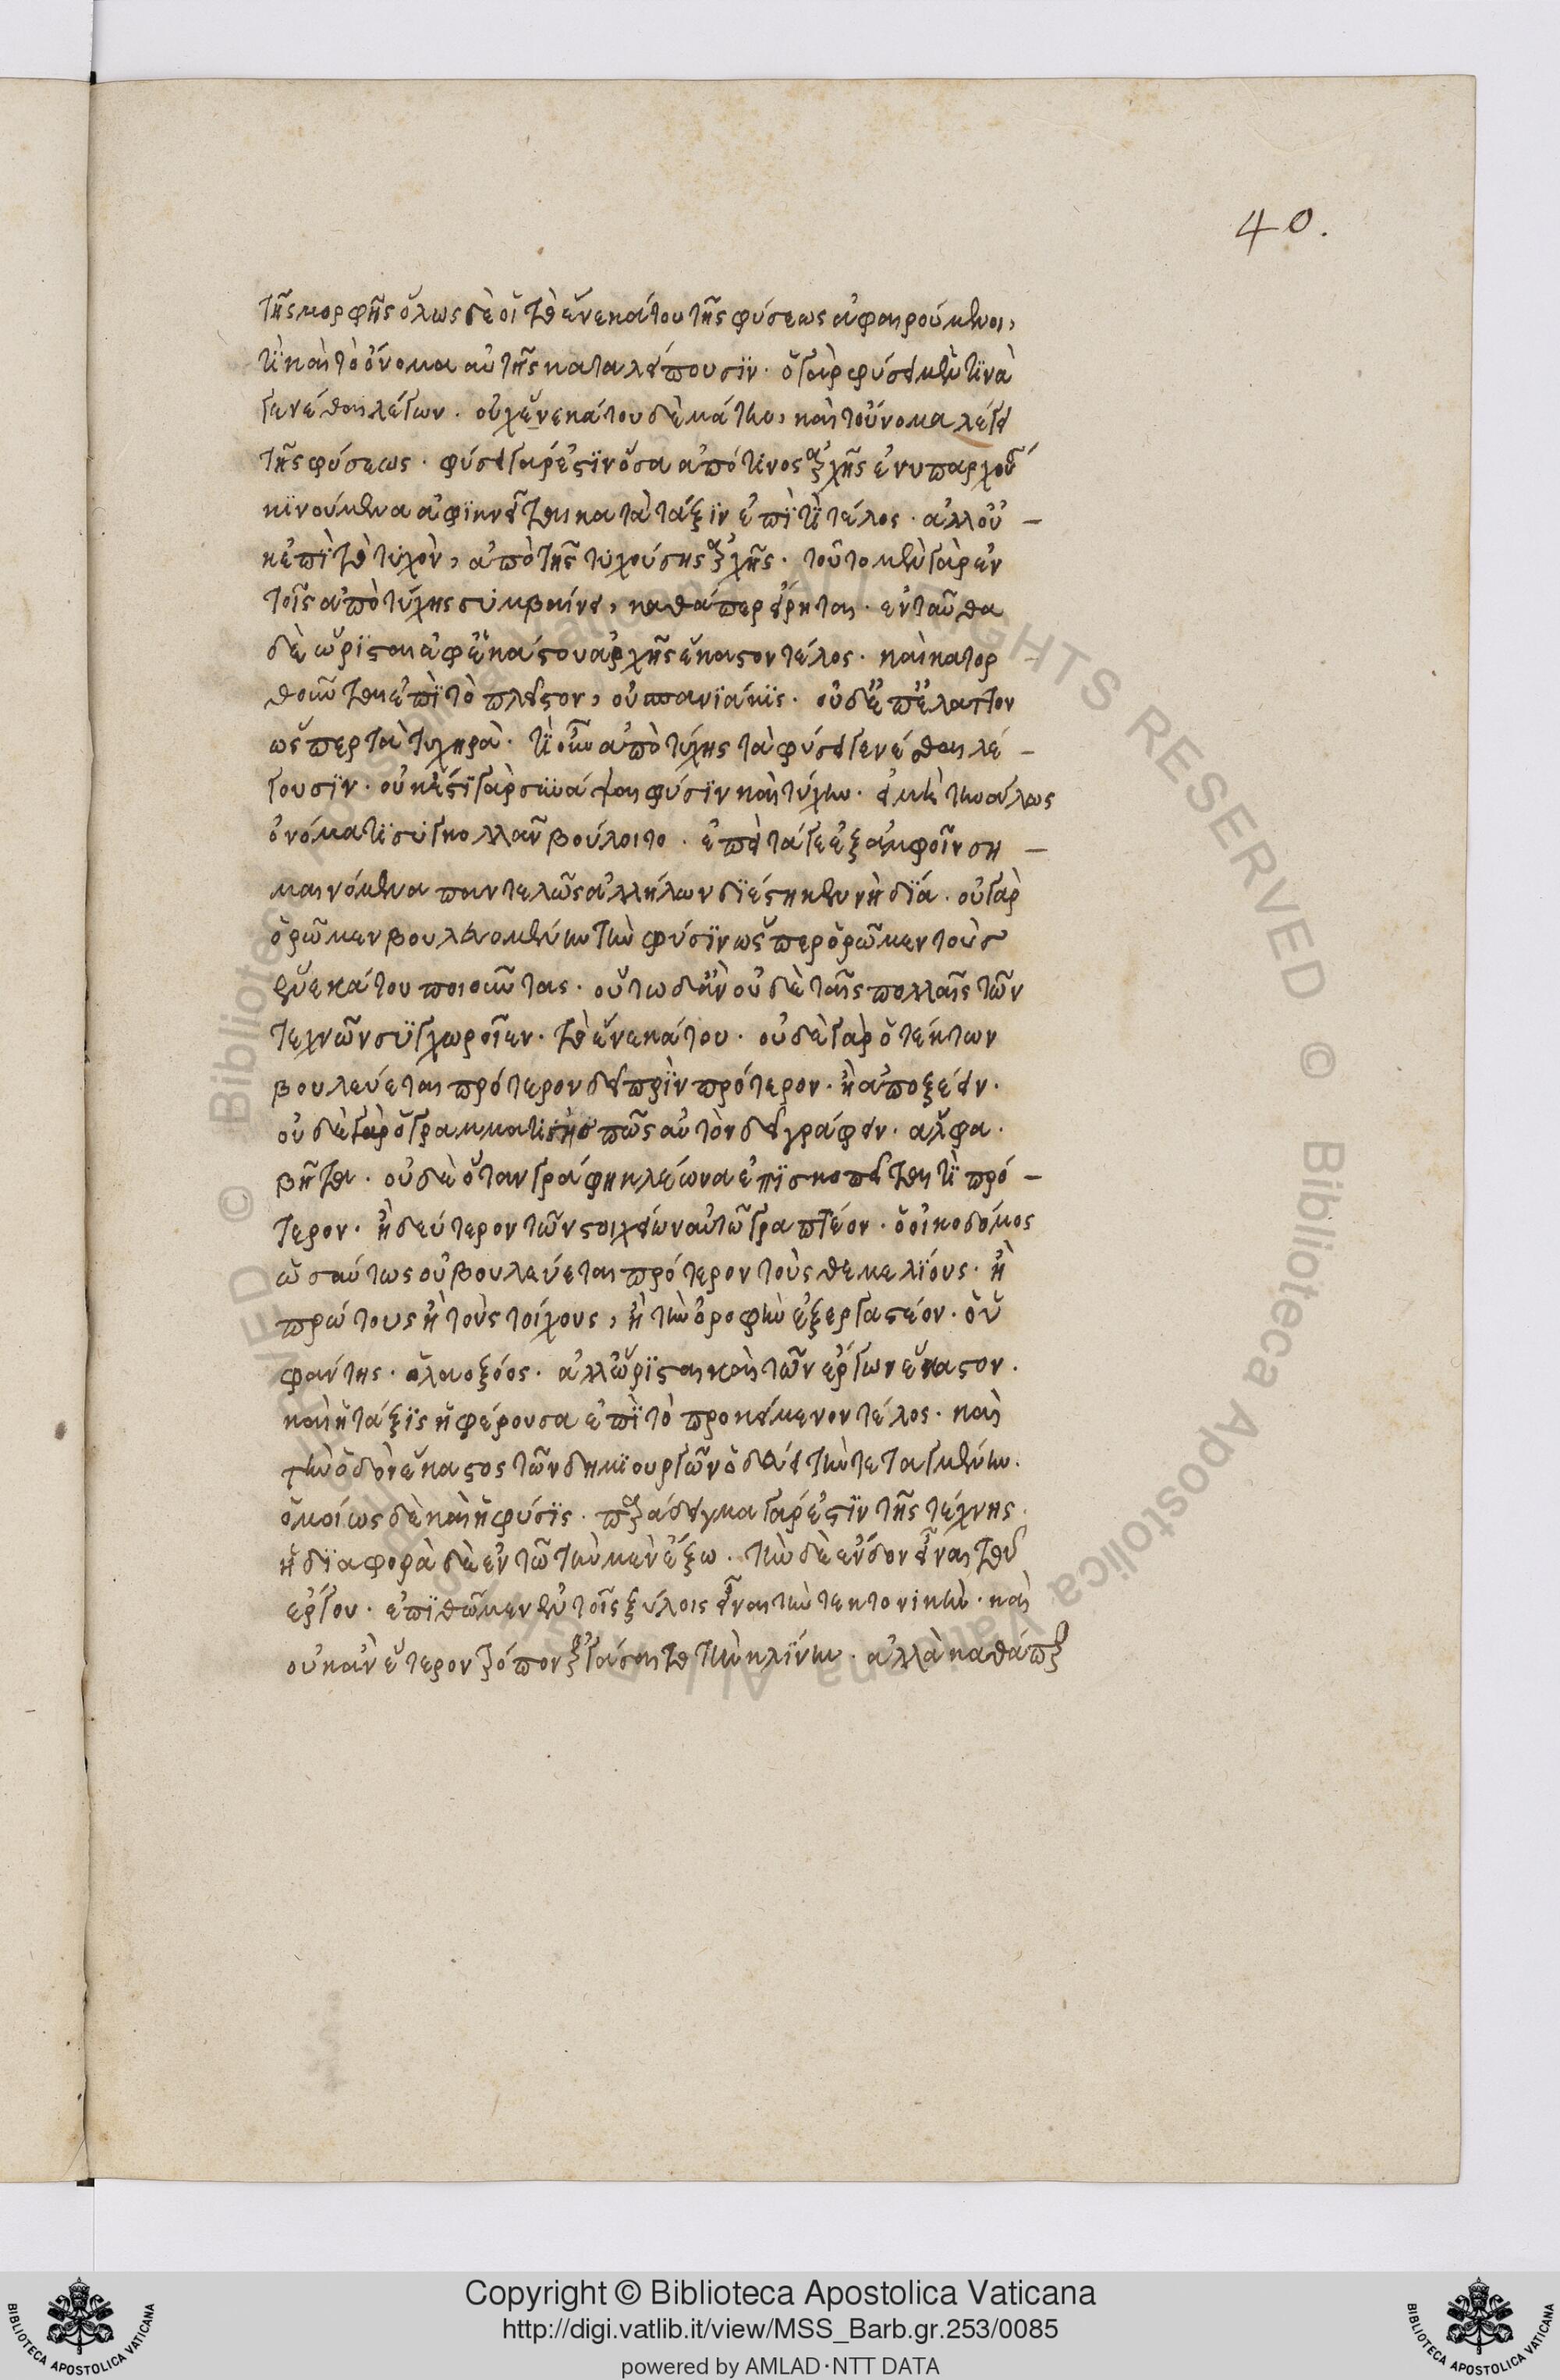 40.
τῆς μορφῆς ὅλως δὲ οἱ τὸ ἕνεκά του τῆς φύσεως ἀφαιρούμενοι,
τί καὶ τὸ ὄνομα αὐτῆς καταλείπουσϊν· ὁ γὰρ φύσει μέν τϊνὰ
γενέσθαι λέγων· οὐχ ἕνεκά του δὲ μάτην, καὶ τοὔνομα λέγει
τῆς φύσεως· φύσει γάρ ἐστϊν ὅσα ἀπό τινος ἀρχῆς ἐνυπαρχού
κϊνούμενα ἀφϊκνεῖται κατὰ τάξϊν ἐπΐ τϊ τέλος· ἀλλ οὐ –
κ ἐπὶ τὸ τυχὸν, ἀπὸ τῆς τυχούσης ἀρχῆς· τοῦτο μὲν γὰρ ἐν
τοῖς ἀπὸ τύχης συμβαίνει, καθάπερ εἴρηται· ἐνταῦθα
δὲ ὥρϊσται ἀφ ἑκάστου ἀρχῆς ἕκαστον τέλος· καὶ κατορ
θοῦται ἐπΐ τὸ πλεῖστον, οὐ σπανϊάκϊς· οὐδ ἐπ ἔλαττον
ὥσπερ τὰ τυχηρὰ· τί οὖν ἀπὸ τύχης τὰ φύσει γενέσθαι λέ –
γουσϊν· οὐκ ἔστϊ γὰρ συνάψαι φύσϊν καὶ τύχην· εἰ μὴ την ἄλλως
ὀνόματϊ συγκολλᾶν βούλοιτο· ἐπεὶ τά γε ἐξ ἀμφοῖν ση –
μαινόμενα παντελῶς ἀλλήλων δϊέστηκεν ἢ δϊά· οὐ γὰρ
ὁρῶμεν βουλευομένην τὴν φύσϊν ὥσπερ ὁρῶμεν τοὺς
ἕνεκά του ποιοῦντας· οὕτω δ ἂν οὐδὲ ταῖς πολλαῖς τῶν
τεχνῶν συγχωροῖεν· τὸ ἕνεκά του· οὐδὲ γὰρ ὁ τέκτων
βουλεύεται πρότερον δεῖ πρϊν πρότερον· ἢ ἀποξέειν·
οὐδὲ γὰρ ὁ γραμματϊστὴς πῶς αὐτὸν δεῖ γράφειν· ἄλφα·
βῆτα· οὐδὲ ὅταν γράφη κλέωνα ἐπϊσκοπεῖται τί πρό –
τερον· ἢ δεύτερον τῶν στοιχείων αὐτῶ γραπτέον· ὁ οἰκοδόμος
ὡσαύτως οὐ βουλεύεται πρότερον τοὺς θεμελϊους· ἢ
πρώτους ἢ τοὺς τοίχους, ἢ τὴν ὀροφὴν ἐξεργαστέον· οὐ
φάντης· ὁ λαοξόος· ἀλλ ὥρϊσται καὶ τῶν ἔργων ἕκαστον·
καὶ ἡ τάξϊς ἡ φέρουσα ἐπΐ τὸ προκείμενον τέλος· καὶ
τὴν ὁδὸν ἕκαστος τῶν δημϊουργῶν ὁδεύει τὴν τεταγμένην·
ὁμοίως δὲ καὶ ἡ φύσϊς· παράδειγμα γάρ ἐστϊν τῆς τέχνης·
ἡ δϊαφορὰ δὲ ἐν τῶ τὴν μὲν ἔξω· τὴν δὲ ἔνδον εἶναι τοῦ
ἔργου· ἐπϊθῶμεν ἐν τοῖς ξύλοις εἶναι τὴν τεκτονικὴν· καὶ
οὐκ ἂν ἕτερον τρόπον ἐργάσαιτο τὴν κλϊνην· ἀλλὰ καθάπερ
Copyright © Biblioteca Apostolica Vaticana
http://digi.vatlib.it/view/MSS_Barb.gr.253/0085
powered by AMLAD·NTT DATA